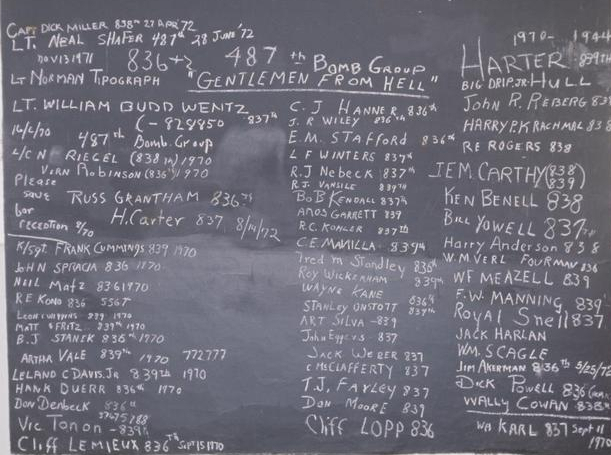 CAPT DICK MILLER 838th 27 APR '72
LT. NEAL SHAFER 487th 28 JUNE '72
NOV 13 1971 836th 487th Bomb Group
LT NORMAN TIPOGRAPH "GENTLEMEN FROM HELL"
LT. WILLIAM BUDD WENTZ
(-828850 837th
14/2/70 487th Bomb. Group
RIEGEL (838th) 1970
VERN ROBINSON (836th) 1970
Please save for reception 8/70
RUSS GRANTHAM 836th
H. Carter 837 8/14/72
FRANK CUMMINGS 839 1970
JOHN SPRACIA 836 1970
NEIL Matz 836 1970
RE KOHO 836
839 1970
MATT FRITZ 839th 1970
B.J STANEK 836th 1970
ARTHA VALE 839th 1970 772777
LELAND C DAVIS, Jr 839th 1970
HANK DUERR 836th 1970
DON Denbeck 836th
Vic Tonon - 839th
Cliff LEMIEUX 836th Sept 15 1970
C. J HANNER 836th
J. R WILEY 836th
E.M. STAFFORD 836th
L F WINTERS 837th
R.J Nebeck 837th
R.J. VANSILE 839th
BoB KENDALL 837th
AMOS GARRETT 839
R.C. KOHLER 837th
C.E. MAVILLA 839th
Fred M Standley 836th
Roy WICKERHAM 839th
WAYNE KANE 836th
STANLEY ONSTOTT 839th
ART SILVA - 839
John Eggers 837
JACK WEBER 837
C McCLAFFERTY 837
T.J. FARLEY 837
DON MOORE 837
Cliff LOPP 836
1970 - 1944
HARTER 839th
BIG DRIP, JR. HULL
JOHN R. REBERG 838
HARRY P.K RACHMAL 838
RE ROGERS 838
JEM. CARTHY (838) (839)
KEN BENELL 838
BILL YOWELL 837th
Harry Anderson 838
W.M VERL FOURMAN 836
WF MEAZELL 839
F.W. MANNING 839
Royal Snell 837
JACK HARLAN
WM. SCAGLE
JIM AKERMAN 836th 5/25/72
Dick Powell 836
WALLY COWAN 838th
WB KARL 837 Sept 11 1970